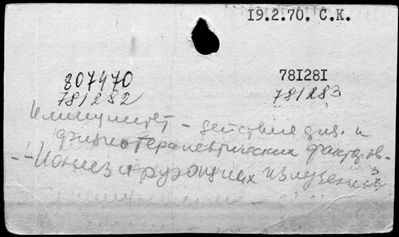 19.2.70. С.К.
807470 781281
781282 781283
Иммунитет - действие физ. и
физиотерапевтических факторов
-- Ионизирующих излучений